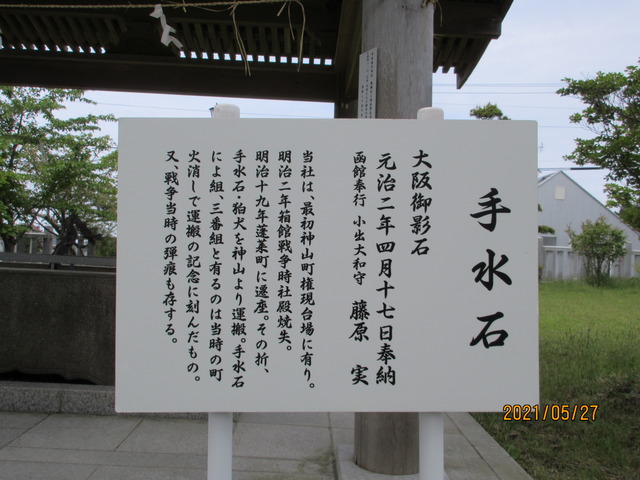 手水石
大阪御影石
元治二年四月十七日奉納
函館奉行 小出大和守 藤原 実
当社は、最初神山町権現台場に有り。
明治二年箱館戦争時社殿焼失。
明治十九年蓬莱町に遷座。その折、
手水石・狛犬を神山より運搬。手水石
によ組、三番組と有るのは当時の町
火消しで運搬の記念に刻んだもの。
又、戦争当時の弾痕も存する。
2021/05/27